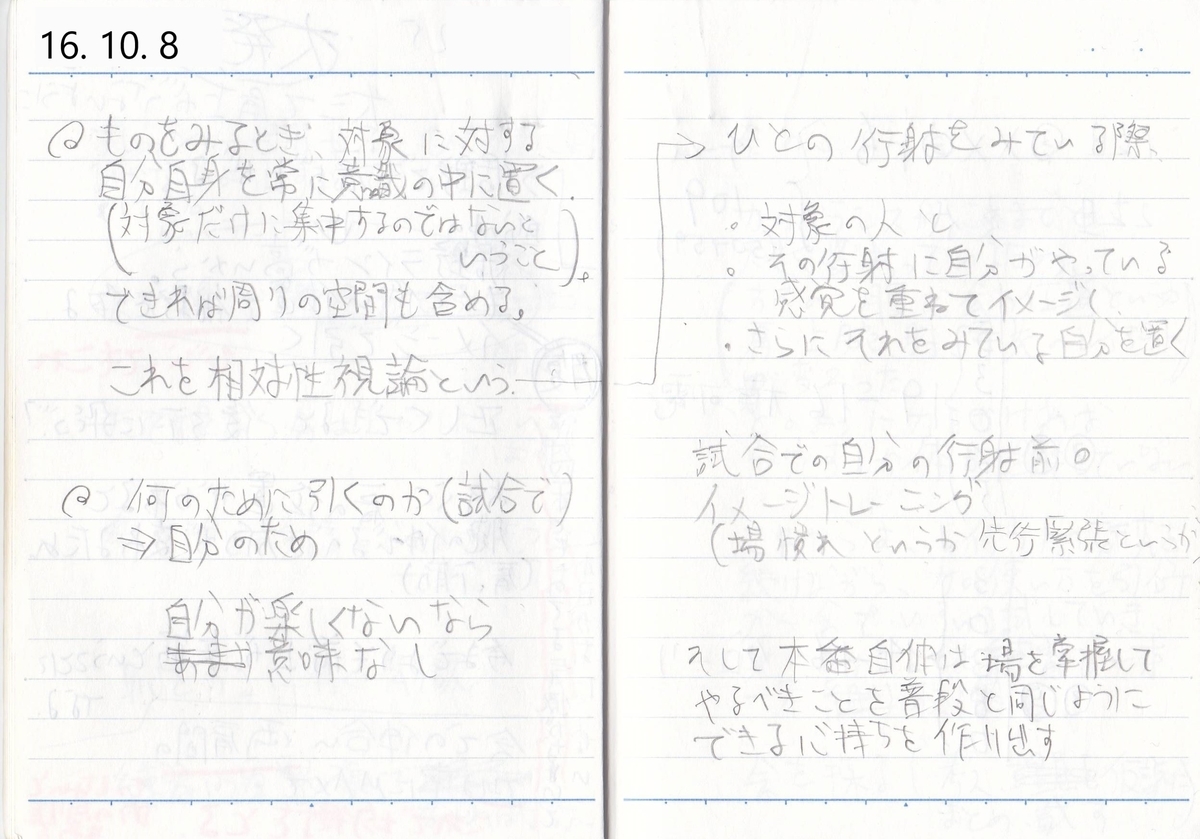 16. 10. 8
ものをみるとき、対象に対する
自分自身を常に意識の中に置く.
(対象だけに集中するのではないと
いうこと)。
できれば周りの空間も含める。
これを相対性視論という.
何のために引くのか(試合で)
⇒自分のため
自分が楽しくないなら
意味なし
→ひとの行射をみている際
・対象の人と
・その行射に自分がやっている
感覚を重ねてイメージく
・さらにそれをみている自分を置く
試合での自分の行射前の
イメージトレーニング
(場慣れというか先行緊張というか
そして本番自体は場を掌握して
やるべきことを普段と同じように
できる心持ちを作り出す